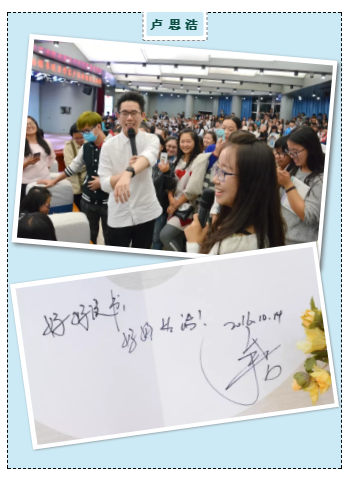 卢思浩
好好读书，
好好生活！
2016.10.14